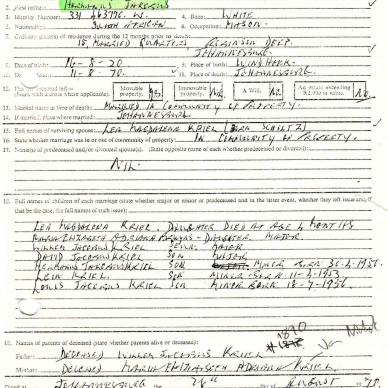 2. First names: Hermanus Jacobus
3. Identity Number: 331 463796 W. 4. Race: WHITE
5. Nationality: SOUTH AFRICAN 6. Occupation: MASON.
7. Ordinary places of residence during the 12 months prior to death:
18, MARRIED QUARTERS ROBINSON DEEP.
JOHANNESBURG.
8. Date of birth: 16-8-20 9. Place of birth: WINDHOEK.
10. Date of death: 11-8-70 11. Place of death: JOHANNESBURG.
12. Has deceased left: (Mark with a cross where applicable). Movable property. Yes. Immovable property. A Will. An estate exceeding R2,000 in value.
13. Marital status at time of death: MARRIED IN COMMUNITY OF PROPERTY.
14. If married, place where married: JOHANNESBURG
15. Full names of surviving spouse: LEA MAGDALENA KRIEL (BORN SCHULTZ)
16. State whether marriage was in or out of community of property: IN COMMUNITY OF PROPERTY.
17. Name(s) of predeceased and/or divorced spouse(s). (State opposite name of each whether predeceased or divorced):
NIL
18. Full names of children of each marriage (state whether major or minor or predeceased and in the latter event, whether they left issue and, if that be the case, the full names of such issue):
LEA MAGDALENA KRIEL. DAUGHTER DIED AT AGE 4 MONTHS
MARIA ELIZABETH ADRIANA - DAUGHTER MAJOR
WILLEM JACOBUS KRIEL. SON. MAJOR
DAVID JACOBUS KRIEL SON MAJOR
HERMANUS JACOBUS KRIEL SON MINOR BORN
LEON KRIEL. SON MINOR BORN 11-2-1953
LOUIS JACOBUS KRIEL SON MINOR BORN 18-7-1956
19. Names of parents of deceased (state whether parents alive or deceased):
Father: DECEASED WILLEM JACOBUS KRIEL
Mother: DECEASED MARIA ELIZABETH ADRIANA KRIEL
Dated at JOHANNESBURG the 28th AUGUST 1970